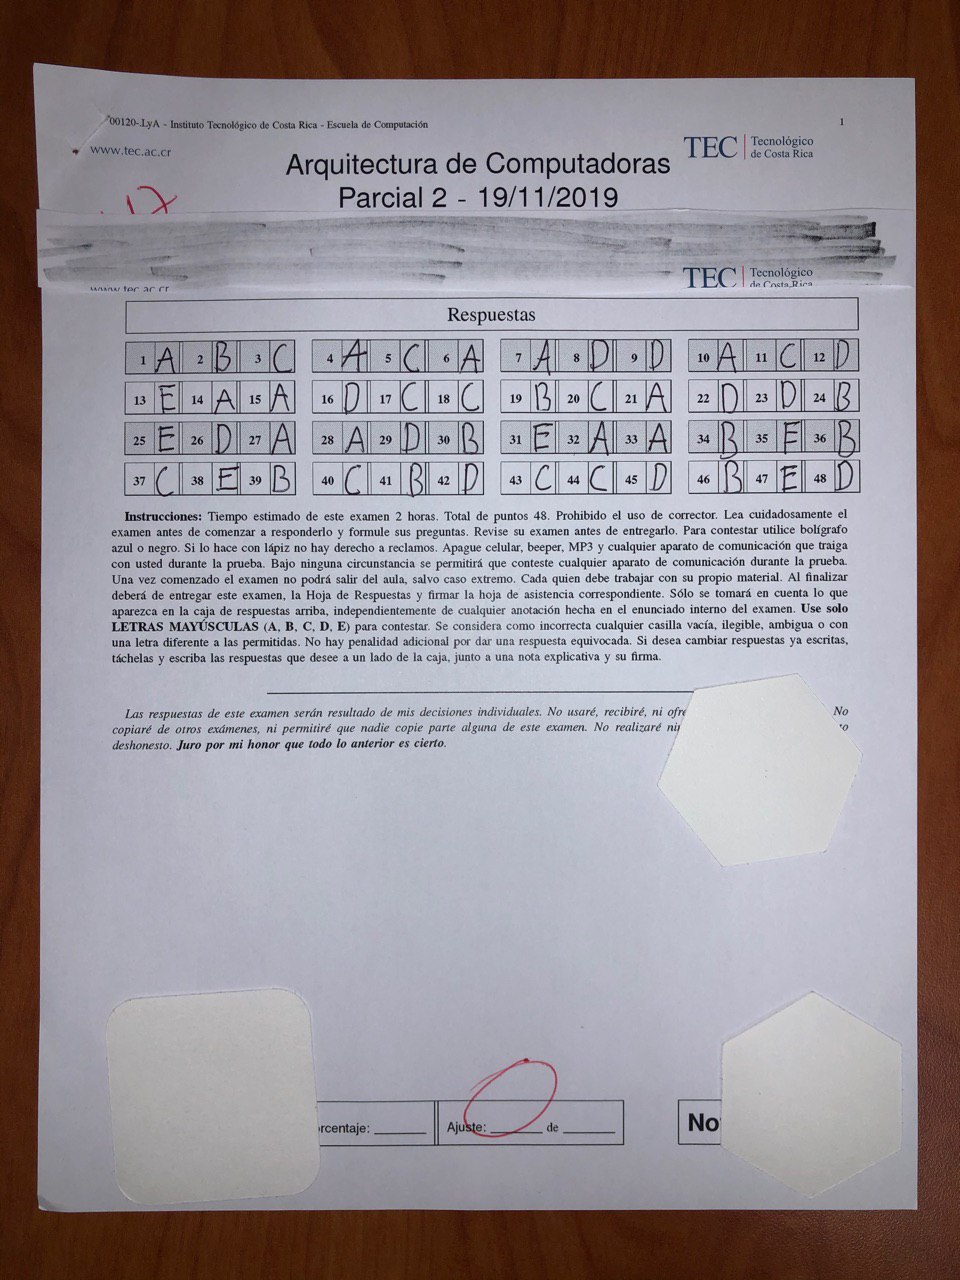 00120-.LyA - Instituto Tecnológico de Costa Rica - Escuela de Computación 1
www.tec.ac.cr
TEC | Tecnológico de Costa Rica
Arquitectura de Computadoras
Parcial 2 - 19/11/2019
TEC | Tecnológico de Costa Rica
www.tec.ac.cr
Respuestas
1 A 2 B 3 C 4 A 5 C 6 A 7 A 8 D 9 D 10 A 11 C 12 D
13 E 14 A 15 A 16 D 17 C 18 C 19 B 20 C 21 A 22 D 23 D 24 B
25 E 26 D 27 A 28 A 29 D 30 B 31 E 32 A 33 A 34 B 35 E 36 B
37 C 38 E 39 B 40 C 41 B 42 D 43 C 44 C 45 D 46 B 47 E 48 D
Instrucciones: Tiempo estimado de este examen 2 horas. Total de puntos 48. Prohibido el uso de corrector. Lea cuidadosamente el
examen antes de comenzar a responderlo y formule sus preguntas. Revise su examen antes de entregarlo. Para contestar utilice bolígrafo
azul o negro. Si lo hace con lápiz no hay derecho a reclamos. Apague celular, beeper, MP3 y cualquier aparato de comunicación que traiga
con usted durante la prueba. Bajo ninguna circunstancia se permitirá que conteste cualquier aparato de comunicación durante la prueba.
Una vez comenzado el examen no podrá salir del aula, salvo caso extremo. Cada quien debe trabajar con su propio material. Al finalizar
deberá de entregar este examen, la Hoja de Respuestas y firmar la hoja de asistencia correspondiente. Sólo se tomará en cuenta lo que
aparezca en la caja de respuestas arriba, independientemente de cualquier anotación hecha en el enunciado interno del examen. Use solo
LETRAS MAYÚSCULAS (A, B, C, D, E) para contestar. Se considera como incorrecta cualquier casilla vacía, ilegible, ambigua o con
una letra diferente a las permitidas. No hay penalidad adicional por dar una respuesta equivocada. Si desea cambiar respuestas ya escritas,
táchelas y escriba las respuestas que desee a un lado de la caja, junto a una nota explicativa y su firma.
Las respuestas de este examen serán resultado de mis decisiones individuales. No usaré, recibiré, ni No
copiaré de otros exámenes, ni permitiré que nadie copie parte alguna de este examen. No realizaré
deshonesto. Juro por mi honor que todo lo anterior es cierto.
rcentaje: Ajuste: de No